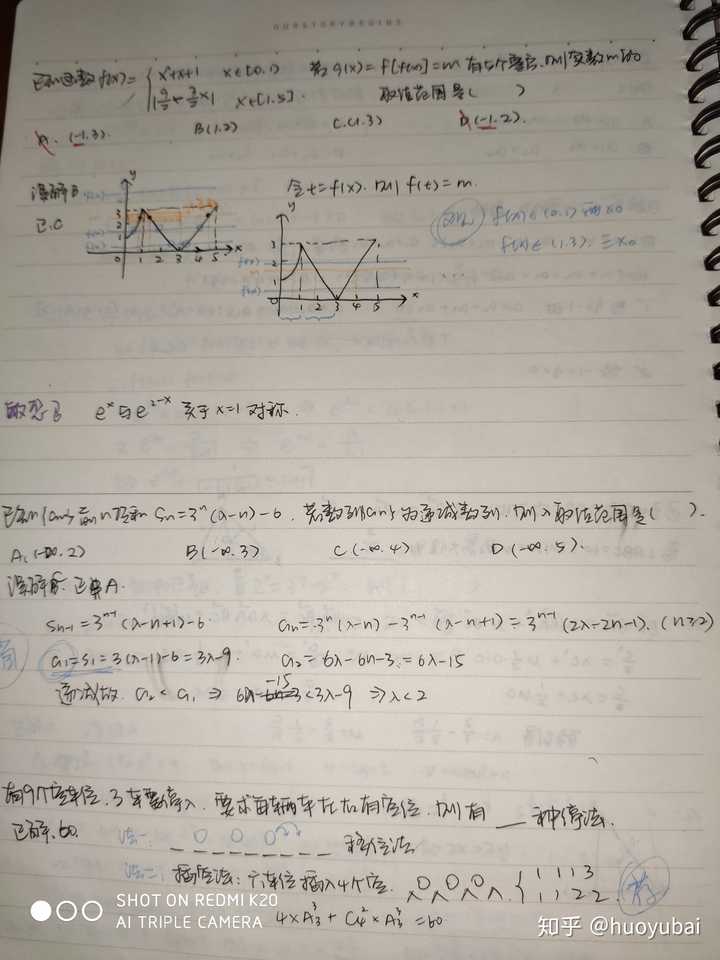 OURSTORYBEGINS
已知函数f(x)= { x²+x+1 x∈[0,1) 若g(x)=f[f(x)]=m 有5个零点,则实数m的
x∈[1,5]. 取值范围是( )
A. (-1.3). B(1.2) C.(1.3) D(-1.2).
误解B 令t=f(x). 则f(t)=m.
正.C
y
3
2
1
0 1 2 3 4 5 x
y
3
2
1
0 1 2 3 4 5 x
f(x)∈(0.1) 两x0
f(x)∈(1.3). 三x0
e^x与e^(2-x) 关于x=1对称.
已知{an}前n项和 Sn=3^n(λ-n)-6. 若数列{an}为递减数列.则λ取值范围是( ).
A.(-∞.2) B(-∞.3) C(-∞.4) D(-∞.5).
误解B. 正解A.
Sn-1=3^(n-1)(λ-n+1)-6. an=3^n(λ-n)-3^(n-1)(λ-n+1)=3^(n-1)(2λ-2n-1). (n≥2)
a1=S1=3(λ-1)-6=3λ-9. a2=6λ-6n-3=6λ-15
递减故. a2<a1 ⇒ 6λ-15<3λ-9 ⇒λ<2
有9个空车位.3车要停入.要求每辆车左右有空位.则有___种停法.
正解.60. 法一: O O O 移位法
法二: 插空法:六车位插入4个空. { 1 1 1 3
1 1 2 2
4×A₃³+C₄²×A₃³=60
SHOT ON REDMI K20
AI TRIPLE CAMERA
知乎 @huoyubai